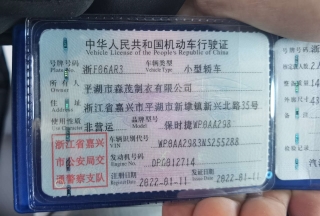 中华人民共和国机动车行驶证
Vehicle License of the People's Republic of China
号牌号码 浙F06AR3 车辆类型 小型轿车
Plate No. Vehicle Type
所有人 平湖市森茂制衣有限公司
Owner
住址 浙江省嘉兴市平湖市新埭镇新兴北路35号
Address
使用性质 非营运 品牌型号 保时捷WP0AA298
Use Character Model
浙江省嘉兴市公安局交通警察支队
车辆识别代号 WP0AA2983NS255288
VIN
发动机号码 DPG012714
Engine No.
注册日期 2022-01-11 发证日期 2022-01-11
Register Date Issue Date